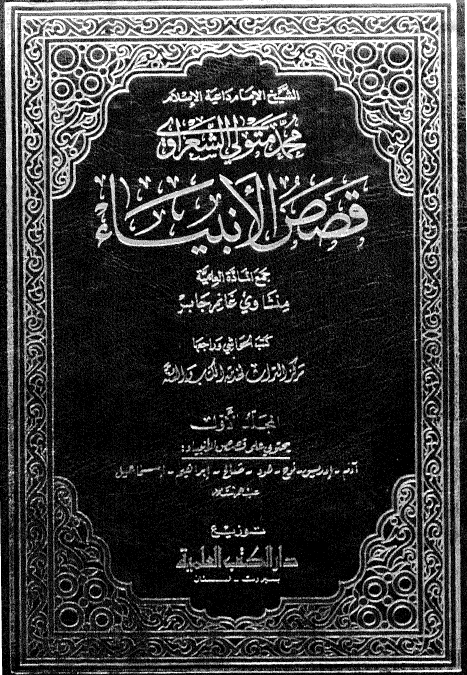 الشيخ الإمام داعية الإسلام
محمد متولي الشعراوي
قصص الأنبياء
جمع المادة العلمية
منشاوي غانم جابر
كتب الحواشي وراجعها
مركز التراث لخدمة الكتاب والسنة
المجلد الأول
يحتوي على قصص الأنبياء:
آدم - إدريس - نوح - هود - صالح - إبراهيم - إسماعيل
عليهم السلام
توزيع
دار الكتب العلمية
بيروت - لبنان